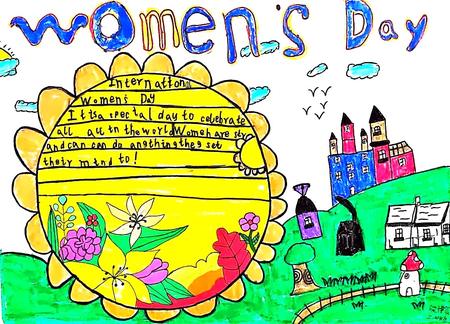 Women's Day
Internation
Womens Day
It is a special day to celebrate
all all in the world Women are
and can can do anything they set
their mind to!